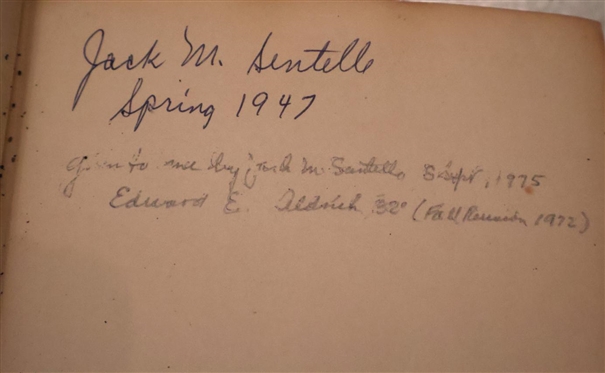 Jack M. Sentelle
Spring 1947
Given to me by Jack M. Sentelle Sept, 1975
Edward E. Aldrich 32° (Fall Reunion 1972)